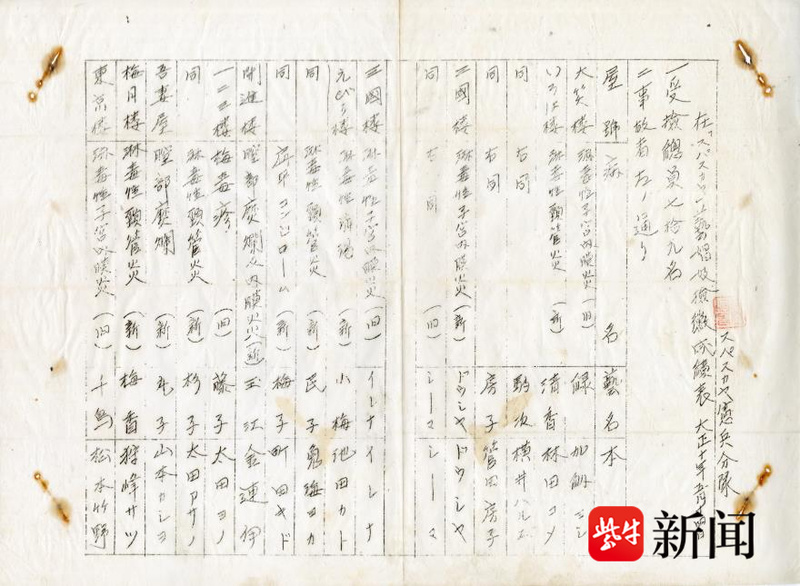 在「スパスカヤ」藝娼妓検黴成績表 大正十年五月
スパスカヤ憲兵分隊
一 受検總員七拾九名
二 事故者左ノ通リ
屋號 病名 藝名 本
大笑楼 淋毒性子宮内膜炎 (旧) 緑 加納
いろは楼 淋毒性頸管炎 (新) 清香 林田コメ
同 右同 駒次 横井ハルエ
同 右同 房子 菅田房子
三國楼 淋毒性子宮内膜炎 (新) ドウシヤ ドウシヤ
同 右同 (旧) シーマ シーマ
三國楼 淋毒性子宮内膜炎 (旧) イレナ イレナ
えびす楼 淋毒性 (新) 小梅 池田カト
同 淋毒性頸管炎 (新) 民子 鬼海ヨカ
同 コンヂローム (新) 梅子 町田キド
開進楼 膣部糜爛 内膜炎 (新) 玉江 金連伊
一二三楼 梅毒疹 (旧) 藤子 太田ヨノ
同 淋毒性頸管炎 (新) 杉子 太田アサノ
吾妻屋 膣部糜爛 (新) 丸子 山本カシヨ
梅月楼 淋毒性頸管炎 (新) 梅香 狩峰サツ
東京楼 淋毒性子宮内膜炎 (旧) 千鳥 松本竹野
紫牛新闻